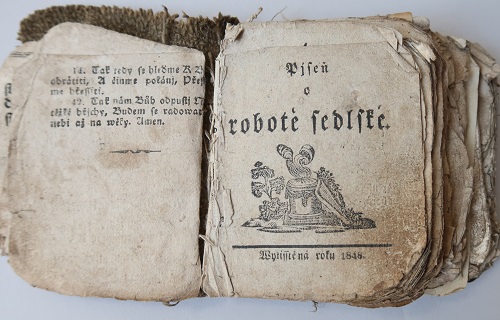 14. Tak tedy se hleďme K B
obrátiti, A čiňme pokánj, Přes
me hřessiti.
42. Tak nám Bůh odpustj
těžké hřjchy, Budem se radowat
nebi až na wěky. Amen.
Pjseň
o
robotě sedlské.
Wytisstěná roku 1848.